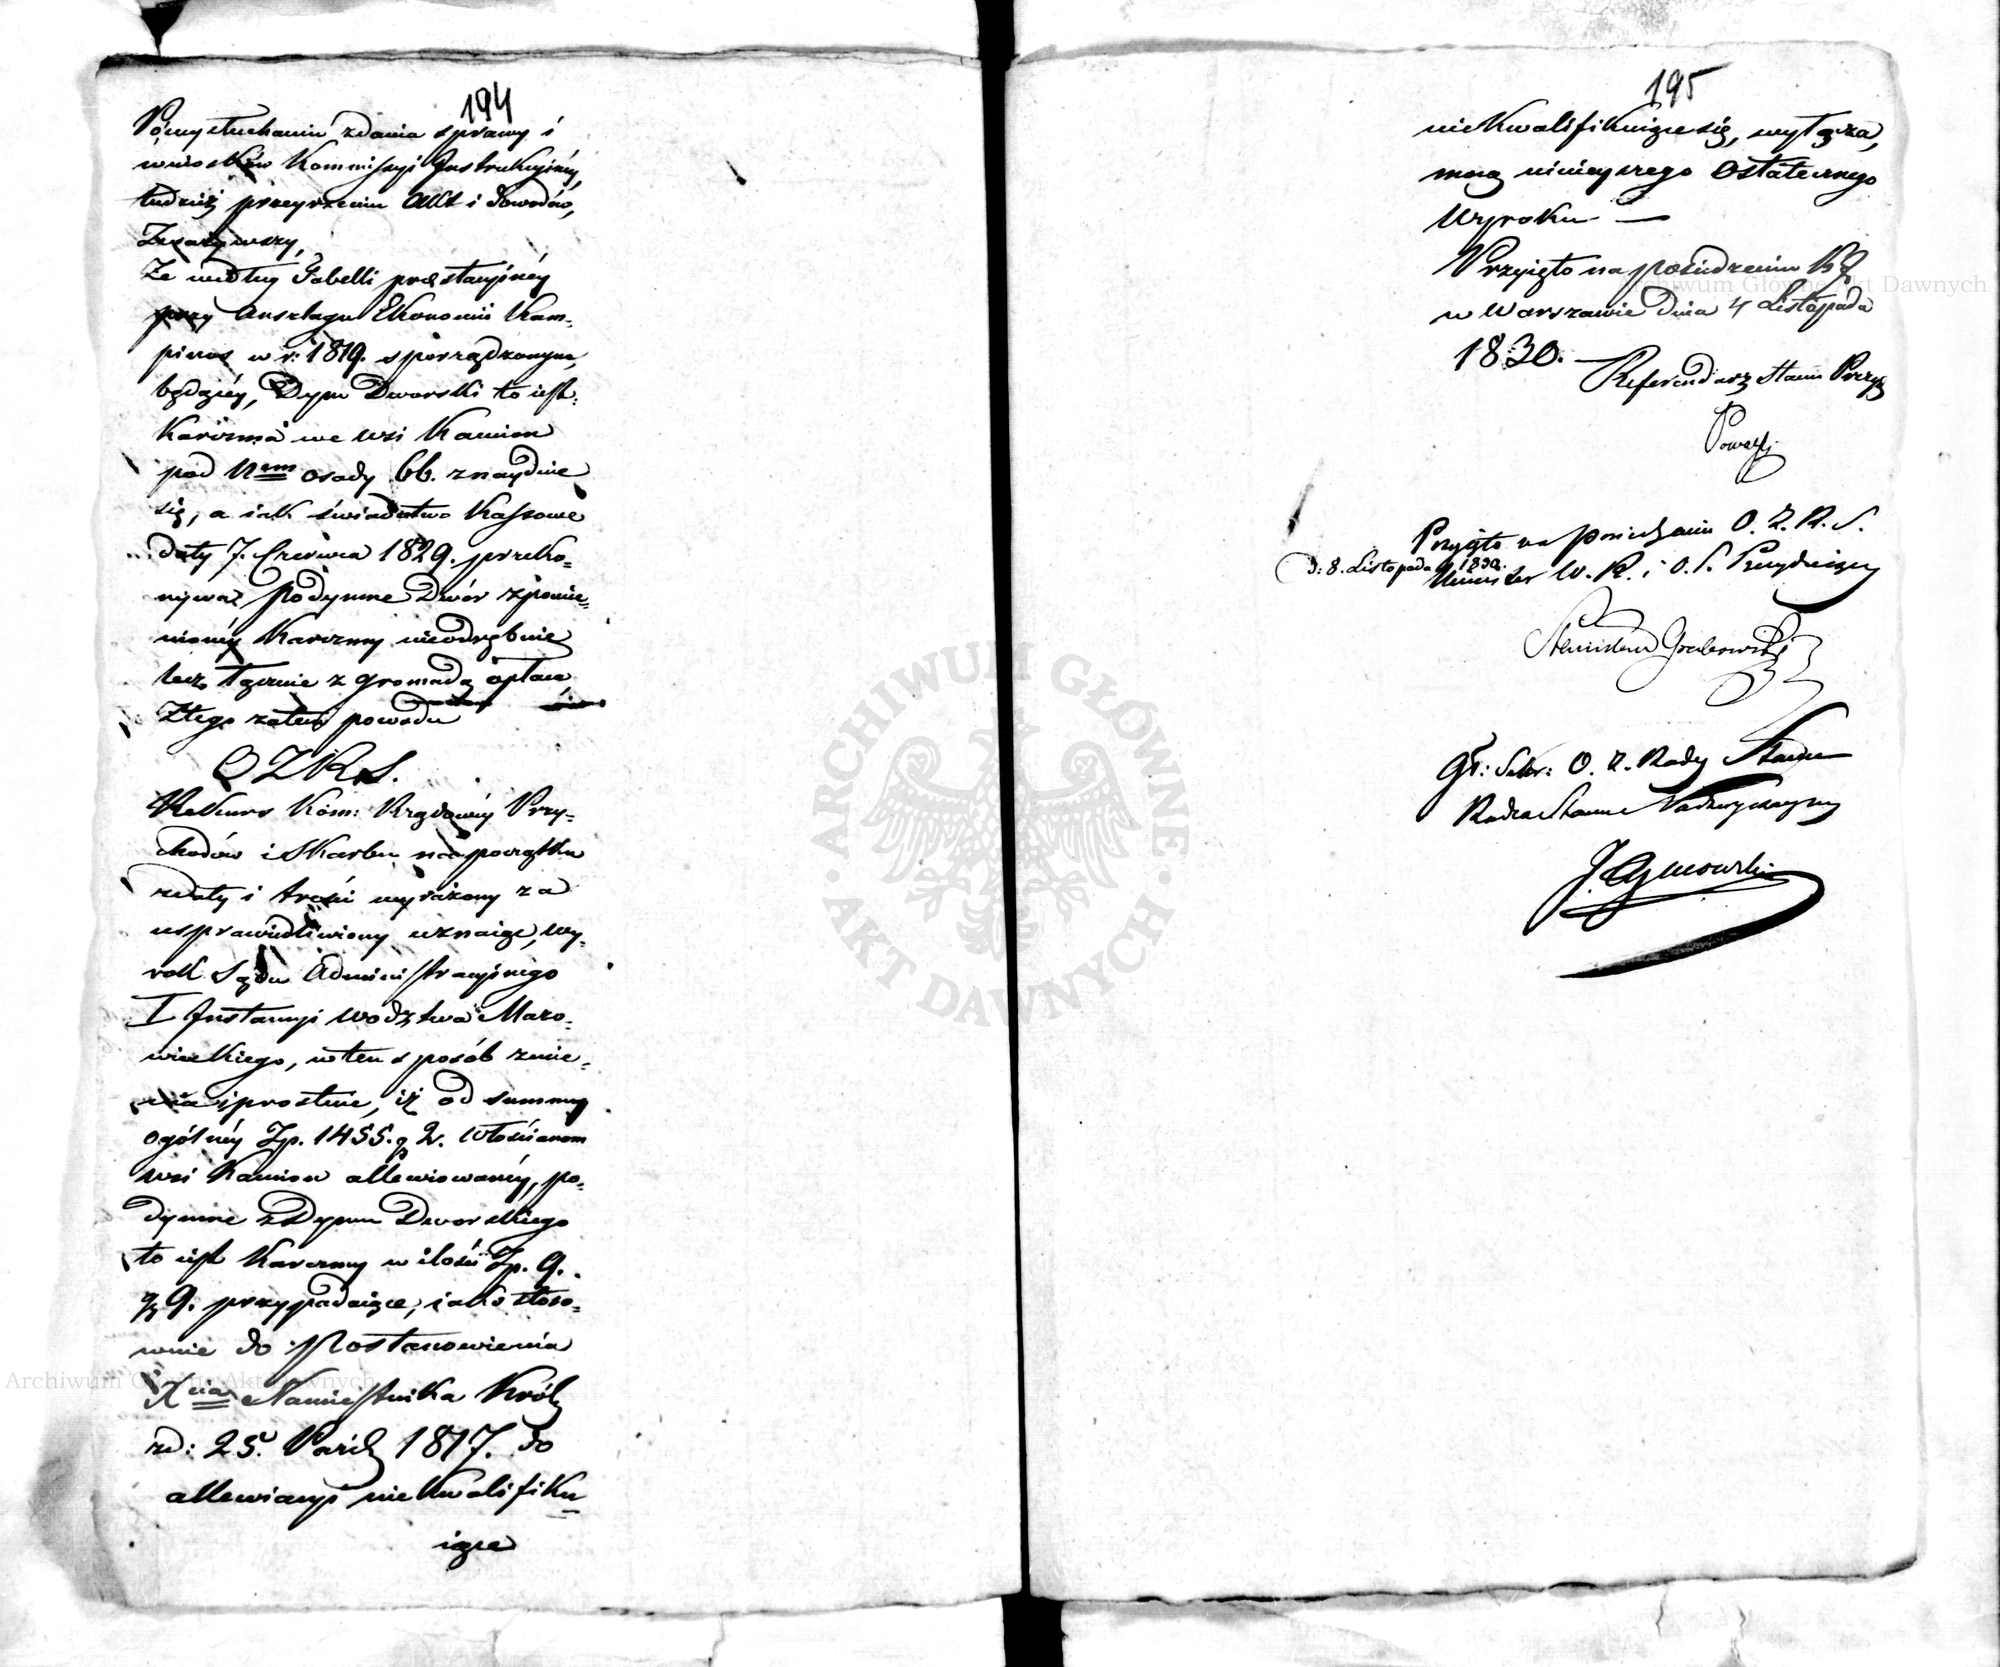 194
Po wysłuchaniu zdania sprawy i
wniosków Kommissyi Instrukcyinéy,
tudzież przeyrzeniu Akt i dowodów,
Zważywszy,
Że według Tabelli prestacyinéy
przy Anszlagu Ekonomii Kam-
pinos w r: 1819. sporządzonym,
będącéy, Dym Dworski to iest:
Karczma we wsi Kamion
pod Nem osady 66. znayduie
się, a iak świadectwo Kassowe
daty 7. Czerwca 1829. przeko-
nywa podymne Dwór z pomie-
nionéy Karczmy nieodrębnie
lecz łącznie z gromadą opłaca,
Z tego zatem powodu
O Z R S.
Rekurs Kom: Rządowéy Przy-
chodów i Skarbu na początku
z daty i treści wyrażony za
usprawiedliwiony uznaiąc, wy-
rok Sądu Administracyinego
I Instancyi Wodztwa Mazo-
wieckiego, w ten sposób zmie-
nia i prostuie, iż od summy
ogólnéy Zp. 1455. g 2. Włościanom
wsi Kamion allewiowanéy, po-
dymne z Dymu Dworskiego
to iest Karczmy w ilości Zp. 9.
g 9. przypadaiące, iako stoso-
wnie do Postanowienia
Xcia Namiestnika Król
z d: 25. Paźdz 1817. do
allewiacyi nie kwalifiku-
iące
195
niekwalifikuiące się, wyłącza,
mocą ninieyszego Ostatecznego
Wyroku —
Przyięto na posiedzeniu
w Warszawie dnia 4 Listopada
1830.
Referendarz Stanu
Przyięto na posiedzeniu O. Z. R. S.
d: 8. Listopada 1830.
Minister W. R. i O. P. Prezyduiący
Stanisław Grabowski
Gł: Sekr: O. Z. Rady Stanu
Radca Stanu Nadzwyczayny
Archiwum Główne Akt Dawnych
Archiwum Główne Akt Dawnych
ARCHIWUM GŁÓWNE
AKT DAWNYCH